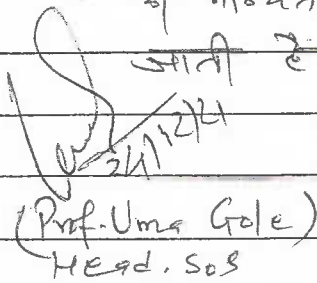 जाती है
24/12/21
(Prof. Uma Gole)
Head. SoS